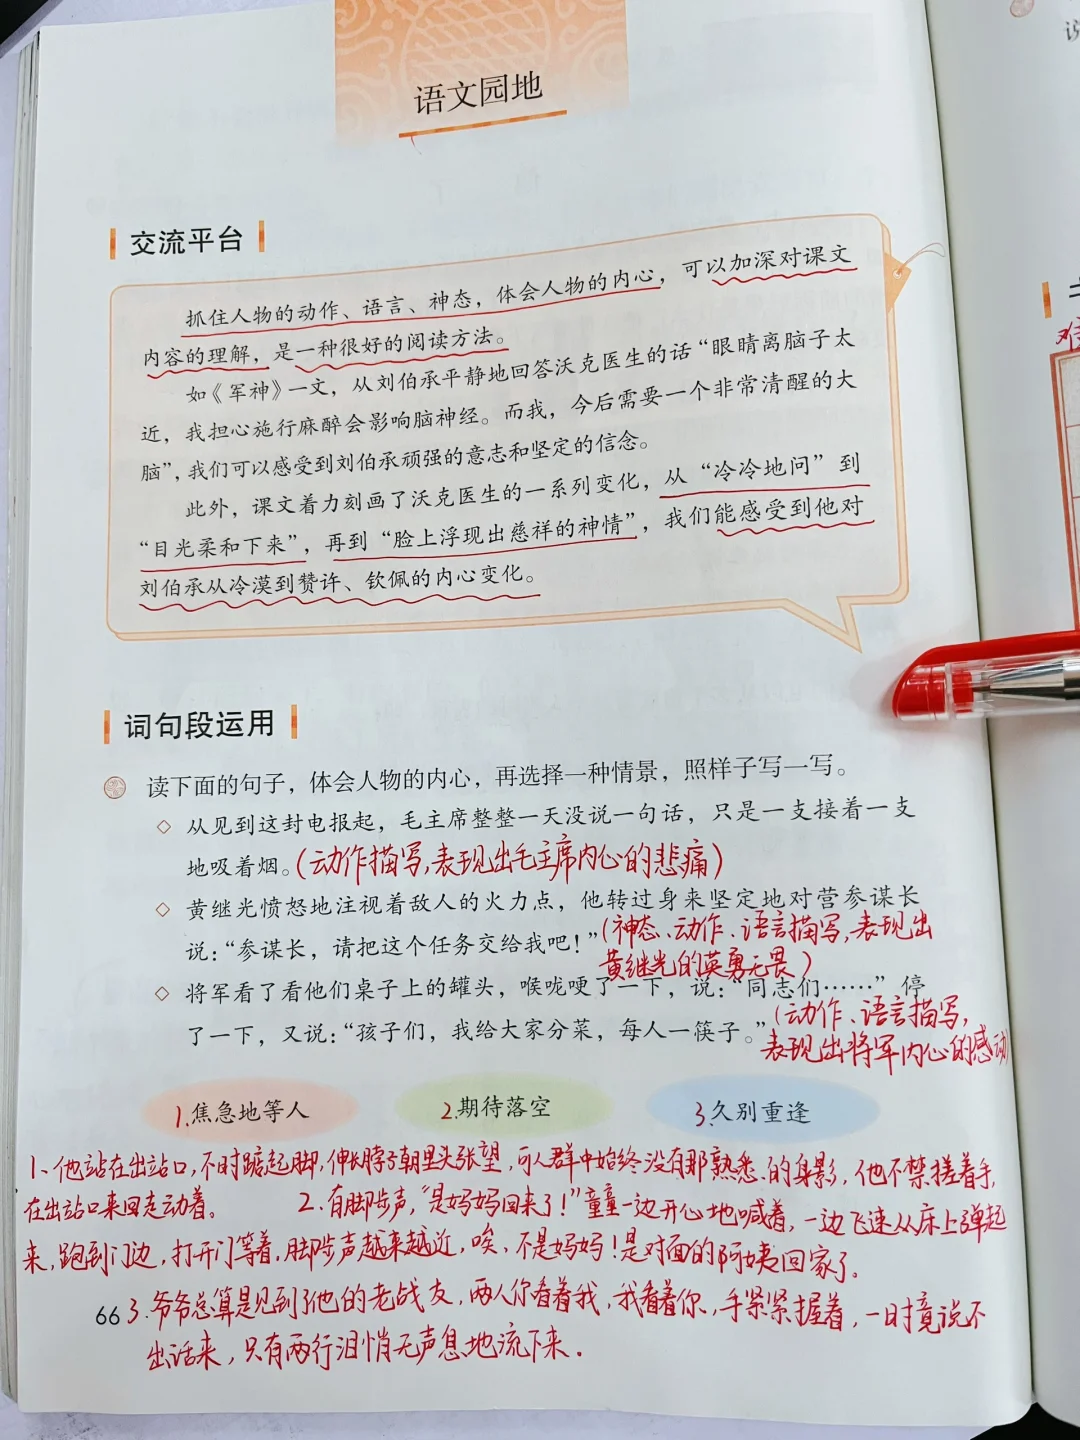 语文园地
交流平台
抓住人物的动作、语言、神态，体会人物的内心，可以加深对课文
内容的理解，是一种很好的阅读方法。
如《军神》一文，从刘伯承平静地回答沃克医生的话“眼睛离脑子太
近，我担心施行麻醉会影响脑神经。而我，今后需要一个非常清醒的大
脑”，我们可以感受到刘伯承顽强的意志和坚定的信念。
此外，课文着力刻画了沃克医生的一系列变化，从“冷冷地问”到
“目光柔和下来”，再到“脸上浮现出慈祥的神情”，我们能感受到他对
刘伯承从冷漠到赞许、钦佩的内心变化。
词句段运用
读下面的句子，体会人物的内心，再选择一种情景，照样子写一写。
◇ 从见到这封电报起，毛主席整整一天没说一句话，只是一支接着一支
地吸着烟。(动作描写,表现出毛主席内心的悲痛)
◇ 黄继光愤怒地注视着敌人的火力点，他转过身来坚定地对营参谋长
说：“参谋长，请把这个任务交给我吧！”(神态、动作、语言描写,表现出
黄继光的英勇无畏)
◇ 将军看了看他们桌子上的罐头，喉咙哽了一下，说：“同志们……”停
了一下，又说：“孩子们，我给大家分菜，每人一筷子。”(动作、语言描写,
表现出将军内心的感动
1.焦急地等人 2.期待落空 3.久别重逢
1、他站在出站口,不时踮起脚,伸长脖子朝里头张望,可人群中始终没有那熟悉的身影,他不禁搓着手,
在出站口来回走动着。 2.有脚步声,“是妈妈回来了!”童童一边开心地喊着,一边飞速从床上弹起
来,跑到门边,打开门等着,脚步声越来越近,唉,不是妈妈!是对面的阿姨回家了。
66 3.爷爷总算是见到了他的老战友,两人你看着我,我看着你,手紧紧握着,一时竟说不
出话来,只有两行泪悄无声息地流下来.